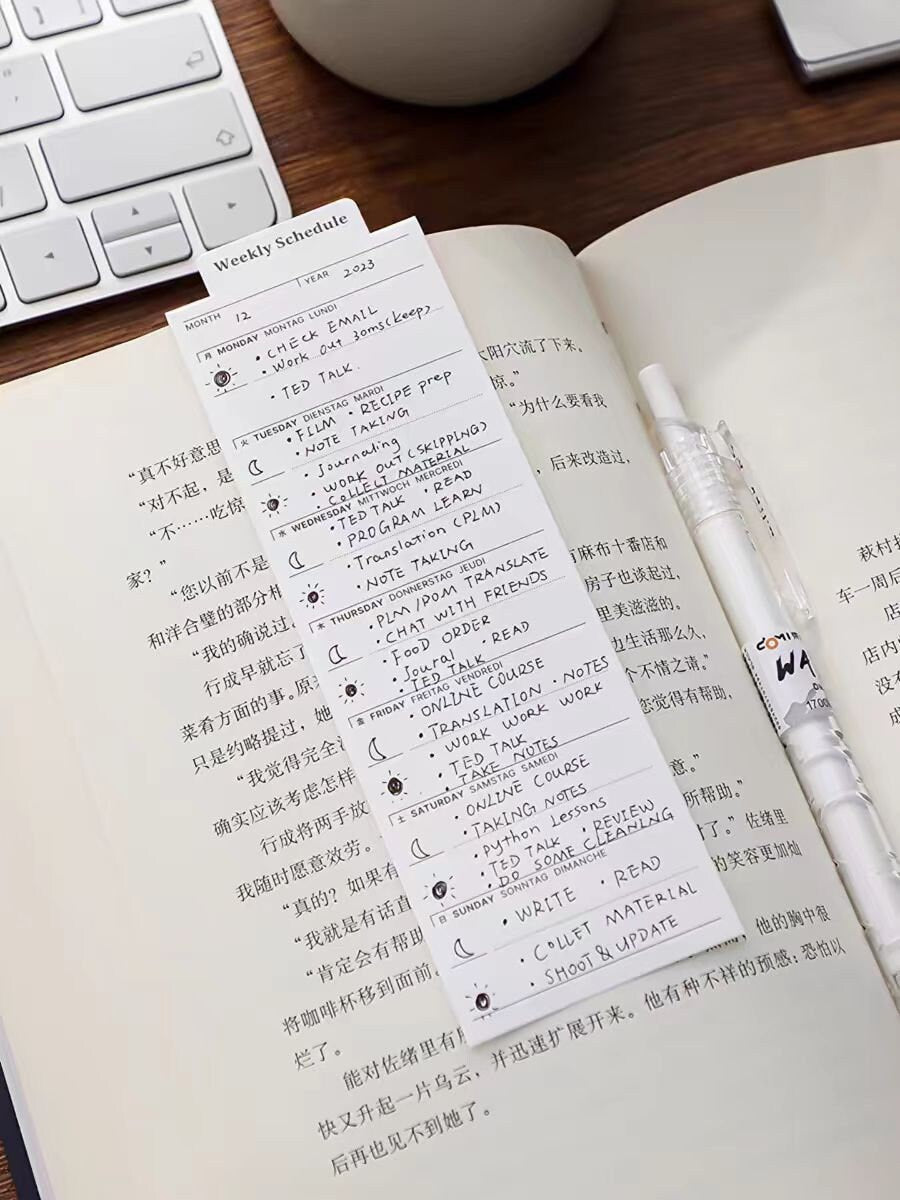 Weekly Schedule
MONTH 12 YEAR 2023
月 MONDAY MONTAG LUNDI
• CHECK EMAIL
• Work out 30ms(keep)
• TED TALK.
火 TUESDAY DIENSTAG MARDI
• FILM • RECIPE prep
• NOTE TAKING
• Journaling
• WORK OUT (SKIPPING)
• COLLECT MATERIAL
水 WEDNESDAY MITTWOCH MERCREDI
• TED TALK • READ
• PROGRAM LEARN
• Translation (PLM)
• NOTE TAKING
木 THURSDAY DONNERSTAG JEUDI
• PLM/POM TRANSLATE
• CHAT WITH FRIENDS
• FOOD ORDER
• Joural • READ
• TED TALK
金 FRIDAY FREITAG VENDREDI
• ONLINE COURSE
• TRANSLATION • NOTES
• WORK WORK WORK
• TED TALK
• TAKE NOTES
土 SATURDAY SAMSTAG SAMEDI
• ONLINE COURSE
• TAKING NOTES
• python Lessons
• TED TALK • REVIEW
• DO SOME CLEANING
日 SUNDAY SONNTAG DIMANCHE
• WRITE • READ
• COLLET MATERIAL
• SHOOT & UPDATE
“真不好意思
“对不起，是
“不……吃惊
家？”
“您以前不是
和洋合璧的部分
“我的确说过
行成早就忘了
菜肴方面的事。原
只是约略提过，她
“我觉得完全
确实应该考虑怎样
行成将两手放
我随时愿意效劳。
“真的？如果有
“我就是有话直
“肯定会有帮助
将咖啡杯移到面前。
烂了。
能对佐绪里有
快又升起一片乌云，并迅速扩展开来。他有种不祥的预感：恐怕以
后再也见不到她了。
太阳穴流了下来。
惊。”
“为什么要看我
，后来改造过，
有麻布十番店和
房子也谈起过，
里美滋滋的。
边生活那么久，
个不情之请。”
您觉得有帮助，
意。”
所帮助。”
时了。”佐绪里
的笑容更加灿
他的胸中很
萩村
车一周后
店
店内
没有
成